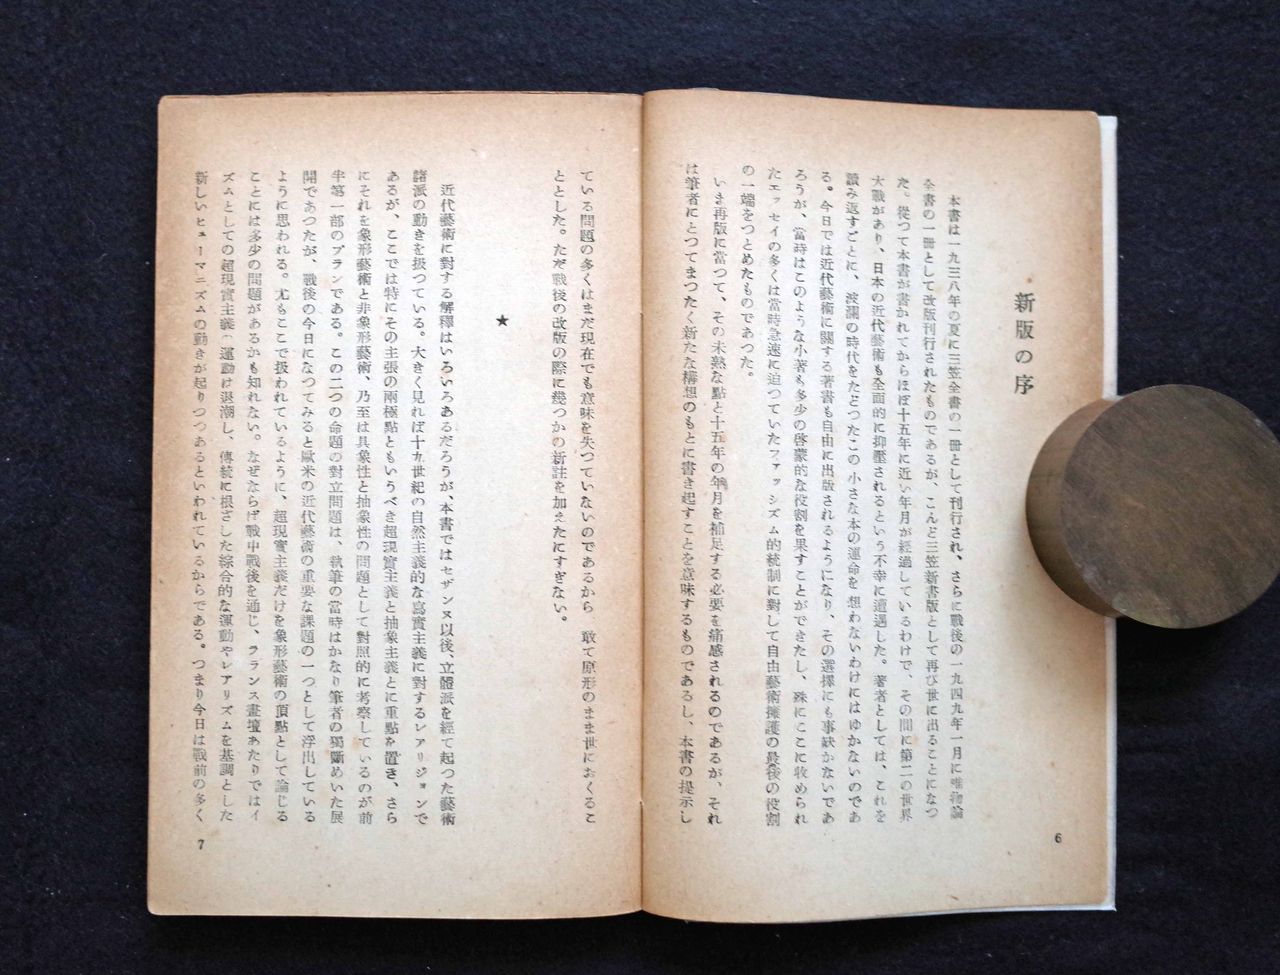 新版の序
本書は一九三八年の夏に三笠全書の一冊として刊行され、さらに戰後の一九四九年一月に唯物論
全書の一冊として改版刊行されたものであるが、こんど三笠新書版として再び世に出ることになつ
た。從つて本書が書かれてからほぼ十五年に近い年月が經過しているわけで、その間に第二の世界
大戰があり、日本の近代藝術も全面的に抑壓されるという不幸に遭遇した。著者としては、これを
讀み返すごとに、波瀾の時代をたどつたこの小さな本の運命を想わないわけにはゆかないのであ
る。今日では近代藝術に關する著書も自由に出版されるようになり、その選擇にも事缺かないであ
ろうが、當時はこのような小著も多少の啓蒙的な役割を果すことができたし、殊にここに收められ
たエッセイの多くは當時急速に迫つていたファッシズム的統制に對して自由藝術擁護の最後の役割
の一端をつとめたものであつた。
いま再版に當つて、その未熟な點と十五年の年月を補足する必要を痛感されるのであるが、それ
は筆者にとつてまつたく新たな構想のもとに書き起すことを意味するものであるし、本書の提示し
6
ている問題の多くはまだ現在でも意味を失つていないのであるから 敢て原形のまま世におくるこ
ととした。ただ戰後の改版の際に幾つかの新註を加えたにすぎない。
★
近代藝術に對する解釋はいろいろあるだろうが、本書ではセザンヌ以後、立體派を經て起つた藝術
諸派の動きを扱つている。大きく見れば十九世紀の自然主義的な寫實主義に對するレアリジョンで
あるが、ここでは特にその主張の兩極點ともいうべき超現實主義と抽象主義とに重點を置き、さら
にそれを象形藝術と非象形藝術、乃至は具象性と抽象性の問題として對照的に考察しているのが前
半第一部のプランである。この二つの命題の對立問題は、執筆の當時はかなり筆者の獨斷めいた展
開であつたが、戰後の今日になつてみると歐米の近代藝術の重要な課題の一つとして浮出している
ように思われる。尤もここで扱われているように、超現實主義だけを象形藝術の頂點として論じる
ことには多少の問題があるかも知れない。なぜならば戰中戰後を通じ、フランス畫壇あたりではイ
ズムとしての超現實主義の運動は退潮し、傳統に根ざした綜合的な運動やレアリズムを基調とした
新しいヒューマニズムの動きが起りつつあるといわれているからである。つまり今日は戰前の多く
7